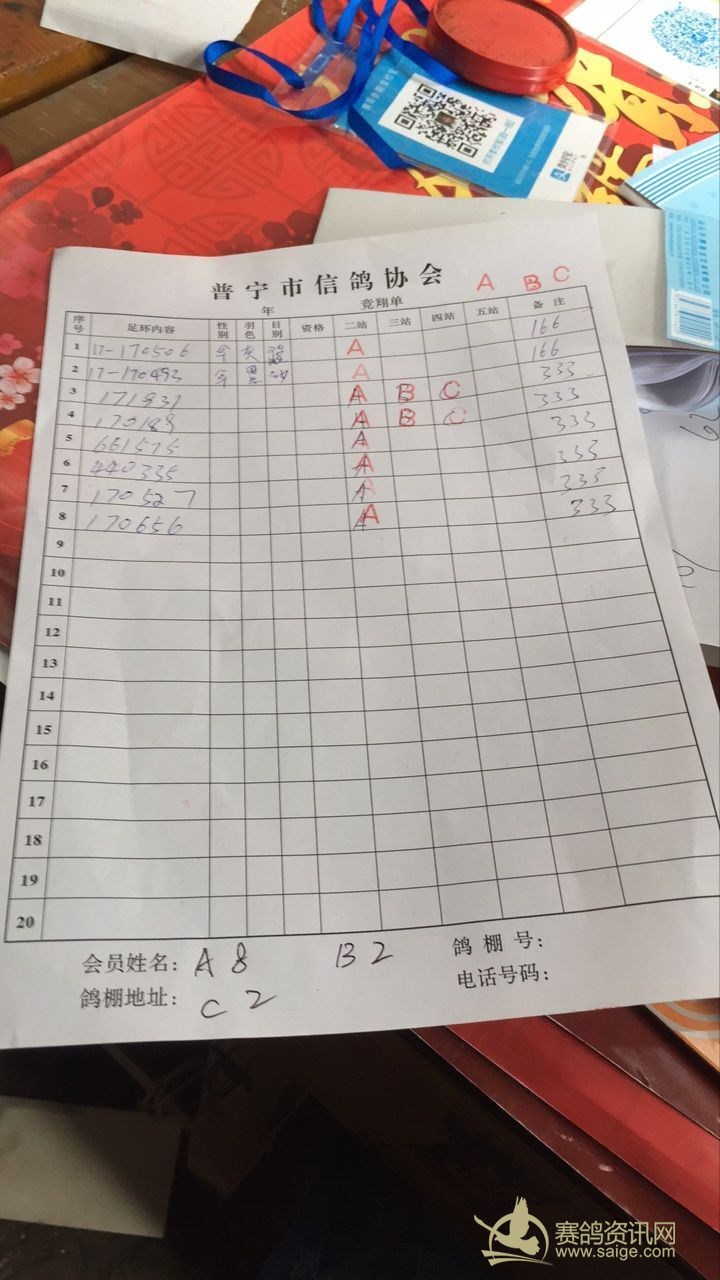 支付宝
普宁市信鸽协会 A B C
年 竞翔单
序号 足环内容 性别 羽色 目别 资格 二站 三站 四站 五站 备注
1 17-170506 灰 A 166
2 17-170493 A 166
3 171931 A B C 333
4 170188 A B C 333
5 661575 A 333
6 440335 A 333
7 170527 A 333
8 170656 A 333
9
10
11
12
13
14
15
16
17
18
19
20
会员姓名: A 8 B 2 鸽棚号:
鸽棚地址: C 2 电话号码:
赛鸽资讯网
www.saige.com